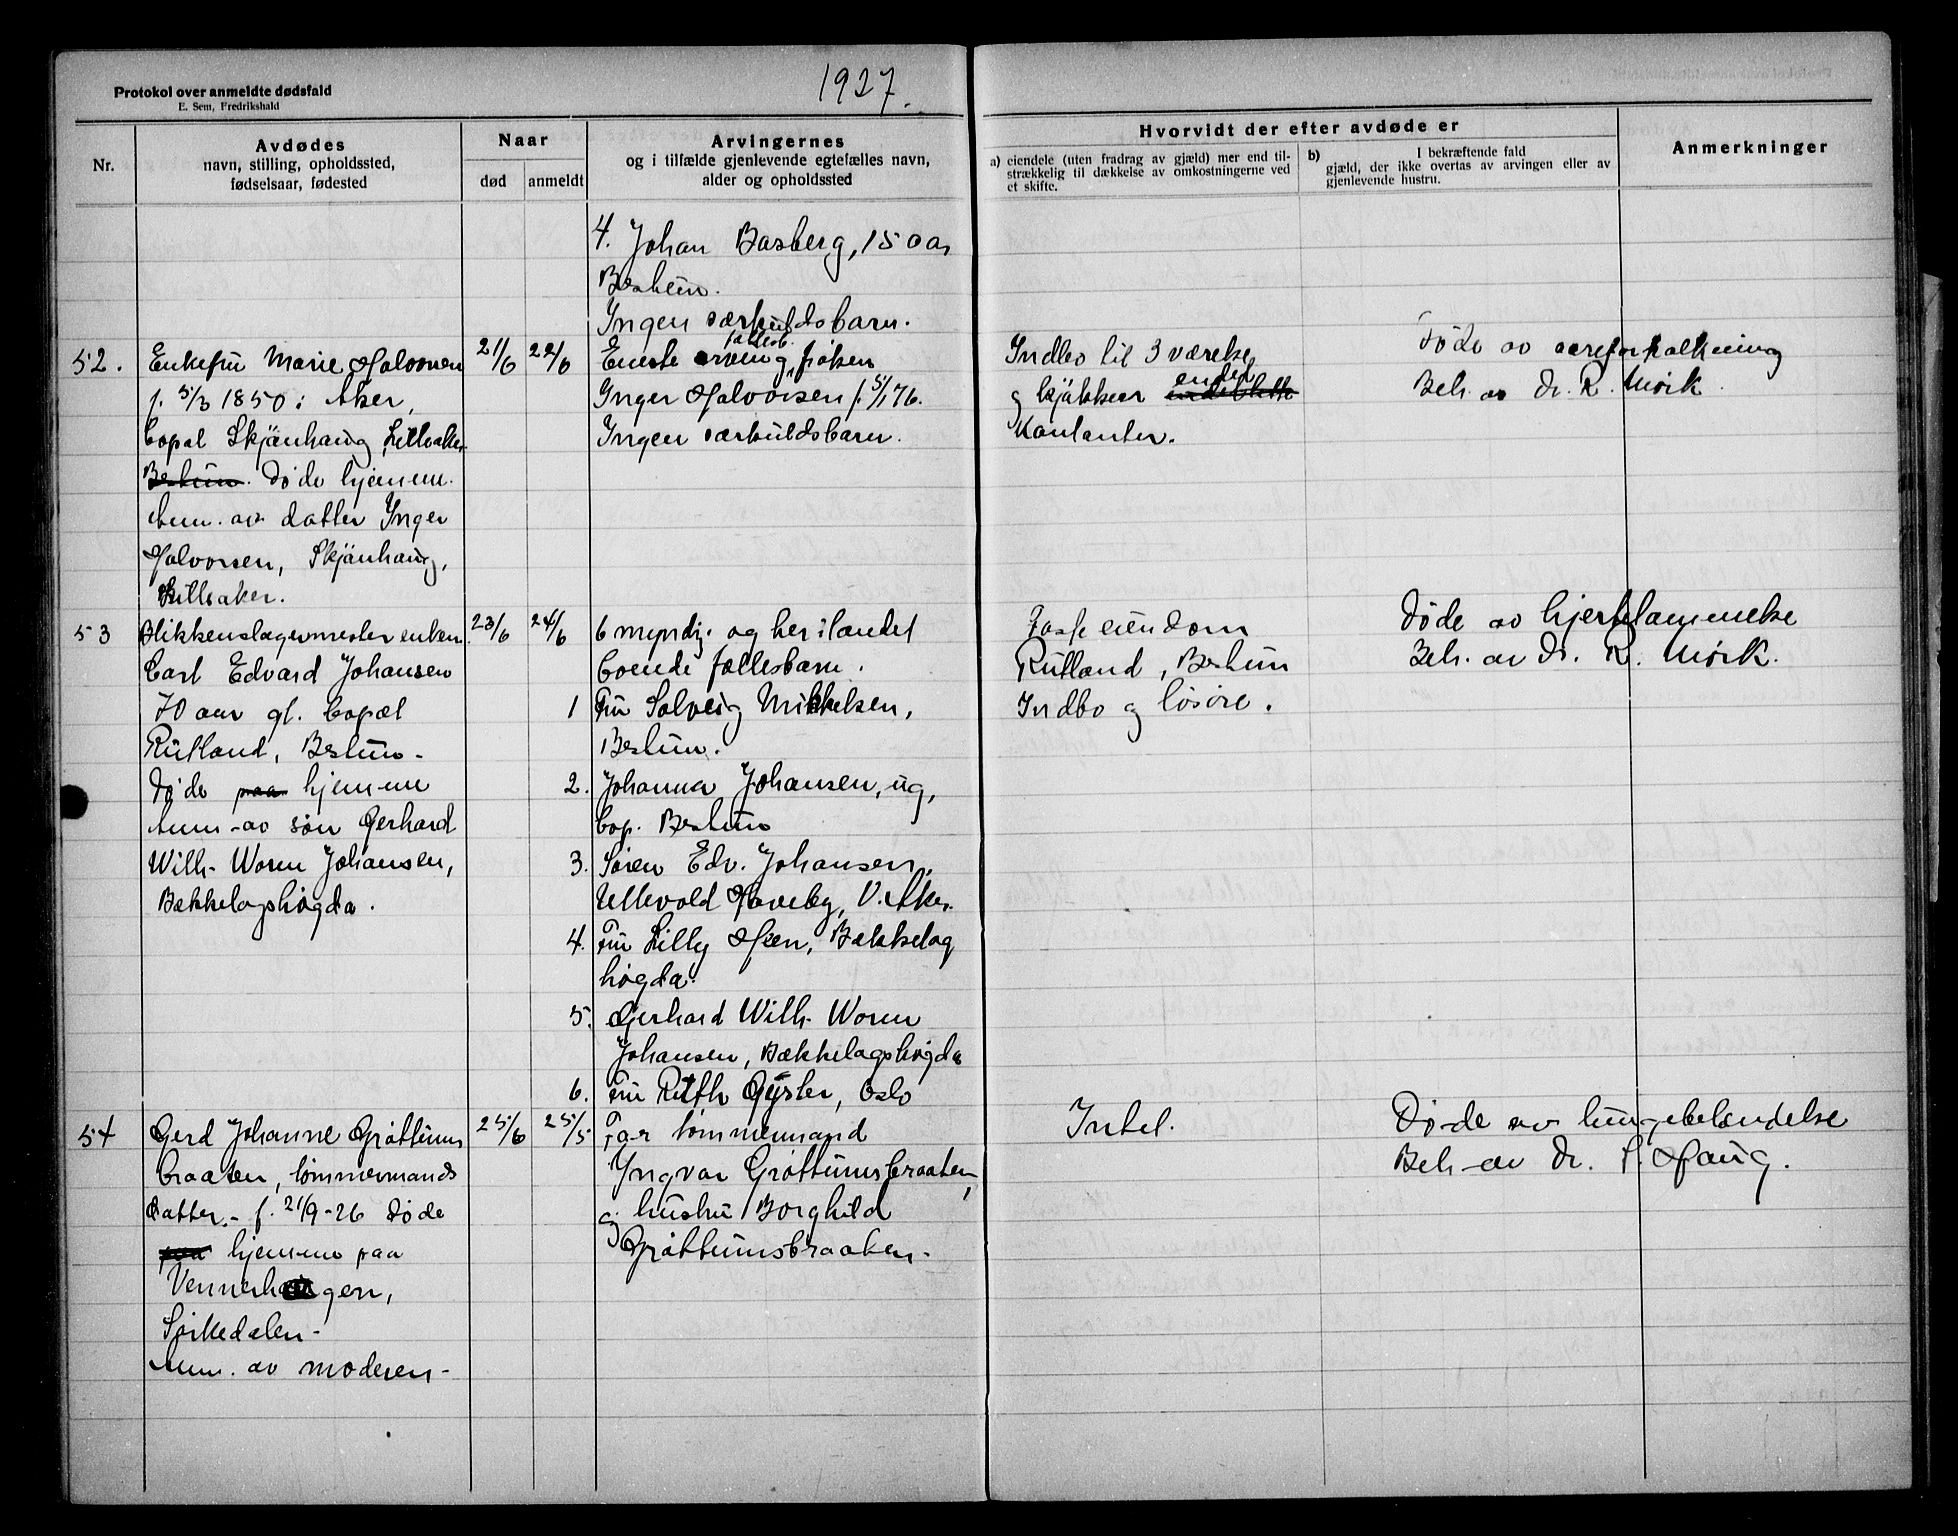 Protokol over anmeldte dødsfald
E. Sem, Fredrikshald
1927.
Nr.
Avdødes
navn, stilling, opholdssted,
fødselsaar, fødested
Naar
død
anmeldt
Arvingernes
og i tilfælde gjenlevende egtefælles navn,
alder og opholdssted
Hvorvidt der efter avdøde er
a) eiendele (uten fradrag av gjæld) mer end til-
strækkelig til dækkelse av omkostningerne ved
et skifte.
b) I bekræftende fald
gjæld, der ikke overtas av arvingen eller av
gjenlevende hustru.
Anmerkninger
4. Johan Basberg, 15 aar
Bestum.
Ingen særkuldsbarn.
52.
Enkefru Marie Halvorsen
f. 5/3 1850 i Aker,
bopæl Skjønhaug, Lilleaker
Bestum. Døde hjemme.
Anm. av datter Inger
Halvorsen, Skjønhaug,
Lilleaker.
21/6
22/6
Eneste arving, fællesb. frøken
Inger Halvorsen f. 5/1 76.
Ingen særkuldsbarn.
Indbo til 3 værelse
og kjøkken endel
Kontanter.
Døde av aareforkalkning
Beh. av dr. R. Mørk.
53
Blikkenslagermester enkem.
Carl Edvard Johansen
70 aar gl. bopæl
Rutland, Bestum.
Døde paa hjemme
Anm. av søn Gerhard
Wilh. Worm Johansen,
Bækkelagshøgda.
23/6
24/6
6 myndj. og her i landet
boende fællesbarn.
1 Fru Solveig Mikkelsen,
Bestum.
2. Johanna Johansen, ug,
bop. Bestum
3. Søren Edv. Johansen,
Ullevold Haveby, V. Aker.
4. Fru Lilly Hien, Bækkelag
høgda.
5. Gerhard Wilh. Worm
Johansen, Bækkelagshøgda
6. Fru Ruth Gysler, Oslo
Faste eiendom
Rutland, Bestum
Indbo og løsøre.
Døde av hjertelammelse
Beh. av dr. R. Mørk.
54
Gerd Johanne Grøttums
braaten, tømmermands
datter. - f. 21/9-26 Døde
paa hjemme paa
Vennerhaugen,
Sørkedalen -
Anm. av moderen -
25/6
25/5
Far tømmermand
Yngvar Grøttumsbraaten,
og hustru Borghild
Grøttumsbraaten -
Intet.
Døde av lungebetændelse
Beh. av dr. P. Haug.